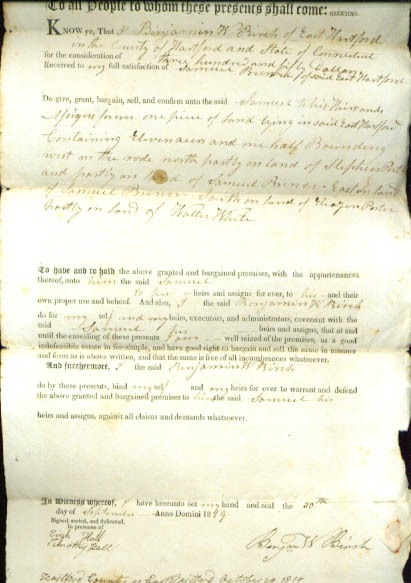 To all People to whom these presents shall come: GREETING.
KNOW ye, That I Benjamin W Birch of East Hartford
in the County of Hartford and State of Connecticut
for the consideration of three hundred and fifty Dollars
Received to my full satisfaction of Samuel Brewer of said East Hartford
Do give, grant, bargain, sell, and confirm unto the said Samuel to his Heirs and
Asigns forever one piece of Land lying in said East Hartford
Containing and one half Bounding
west on the rode north partly on land of Stephen
and partly on land of Samuel Brewer East on land
of Samuel Brewer South on Land of Porter
partly on Land of White
To have and to hold the above granted and bargained premises, with the appurtenances
thereof, unto him the said Samuel
to his heirs and assigns for ever, to his and their
own proper use and behoof. And also, I the said Benjamin W Birch
do for my self and my heirs, executors, and administrators, covenant with the
said Samuel his heirs and assigns, that at and
until the ensealing of these presents I am well seized of the premises, as a good
indefeasible estate in fee-simple, and have good right to bargain and sell the same in manner
and form as is above written, and that the same is free of all incumbrances whatsoever.
And furthermore, I the said Benjamin W Birch
do by these presents, bind my self and my heirs for ever to warrant and defend
the above granted and bargained premises to him the said Samuel his
heirs and assigns, against all claims and demands whatsoever.
In Witness whereof, I have hereunto set my hand and seal the 30th
day of September Anno Domini 18
Signed, sealed, and delivered,
in presence of
Hall
Timothy Hall
Benjn W Birch
Hartford County ss East Hartford October